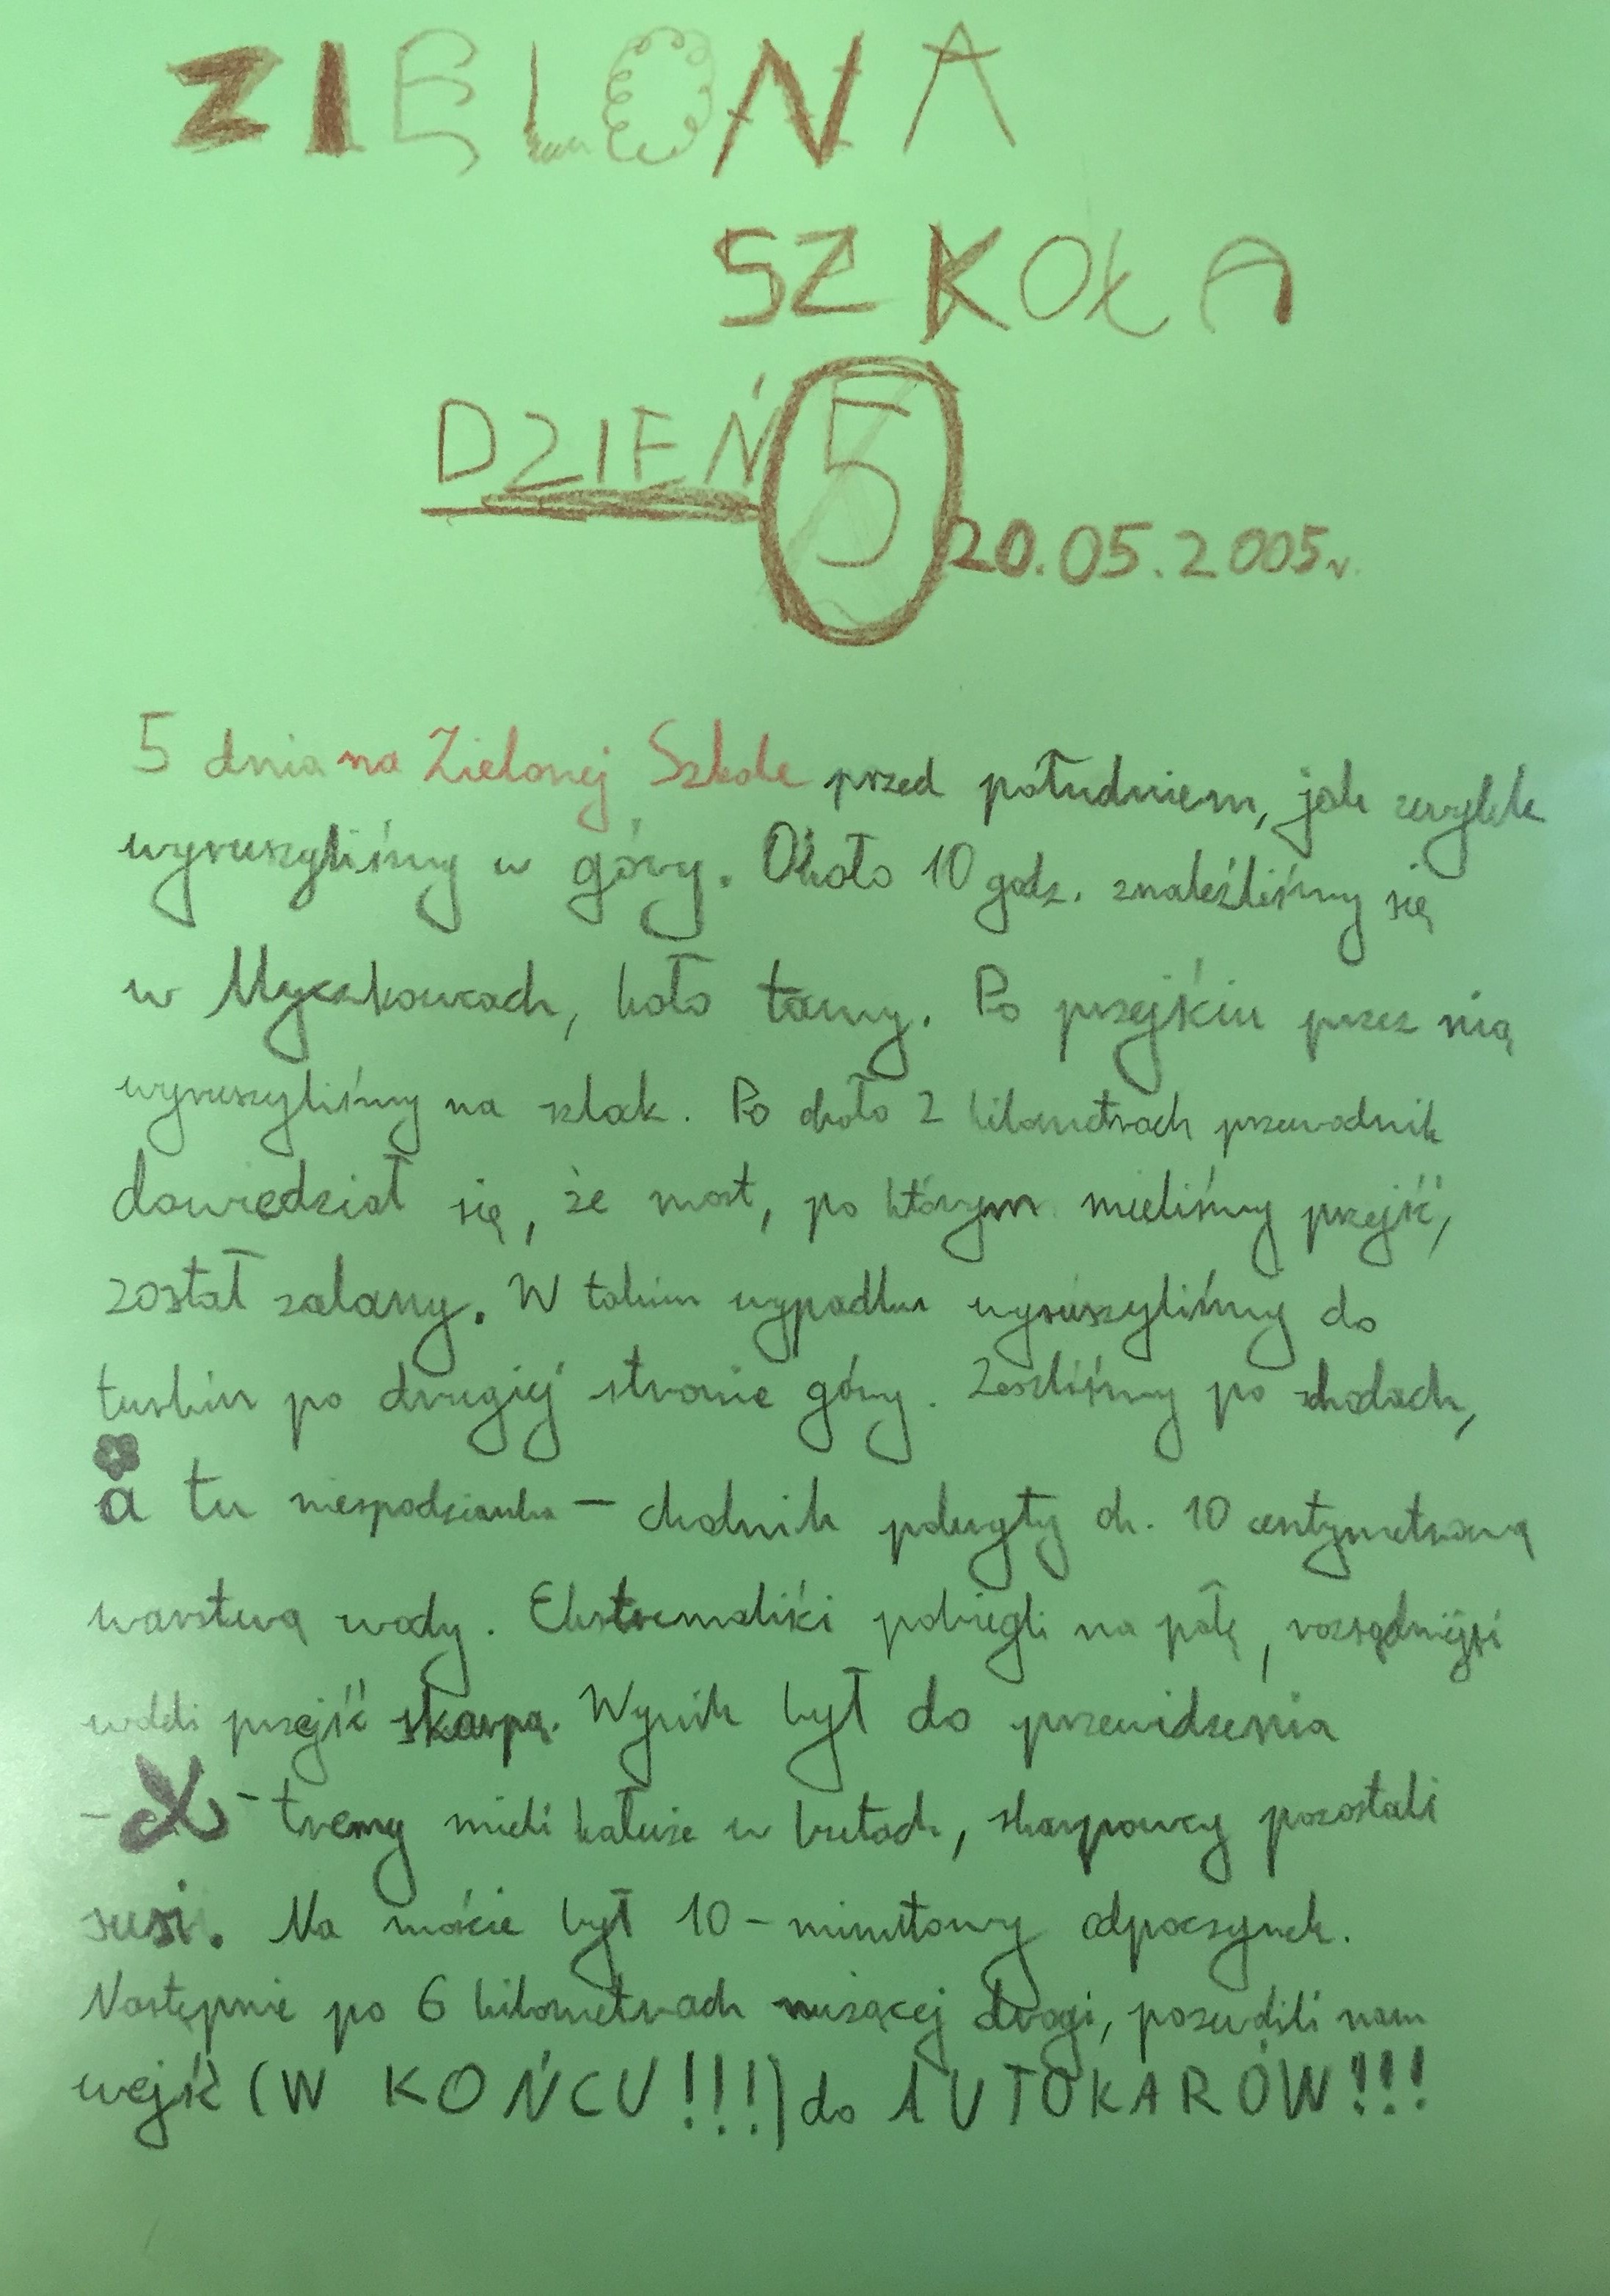 ZIELONA
SZKOŁA
DZIEŃ 5 20.05.2005r.
5 dnia na Zielonej Szkole przed południem, jak zwykle
wyruszyliśmy w góry. Około 10 godz. znaleźliśmy się
w Myczkowcach, koło tamy. Po przejściu przez nią
wyruszyliśmy na szlak. Po około 2 kilometrach przewodnik
dowiedział się, że most, po którym mieliśmy przejść,
został zalany. W takim wypadku wyruszyliśmy do
turbin po drugiej stronie góry. Zeszliśmy po schodach,
a tu niespodzianka – chodnik pokryty ok. 10 centymetrową
warstwą wody. Ekstremaliki pobiegli na pałę, rozsądniejsi
woleli przejść skarpą. Wynik był do przewidzenia
– X-tremy mieli kałuże w butach, skarpowcy pozostali
susi. Na moście był 10-minutowy odpoczynek.
Następnie po 6 kilometrach nużącej drogi, pozwolili nam
wejść (W KOŃCU!!!) do AUTOKARÓW!!!